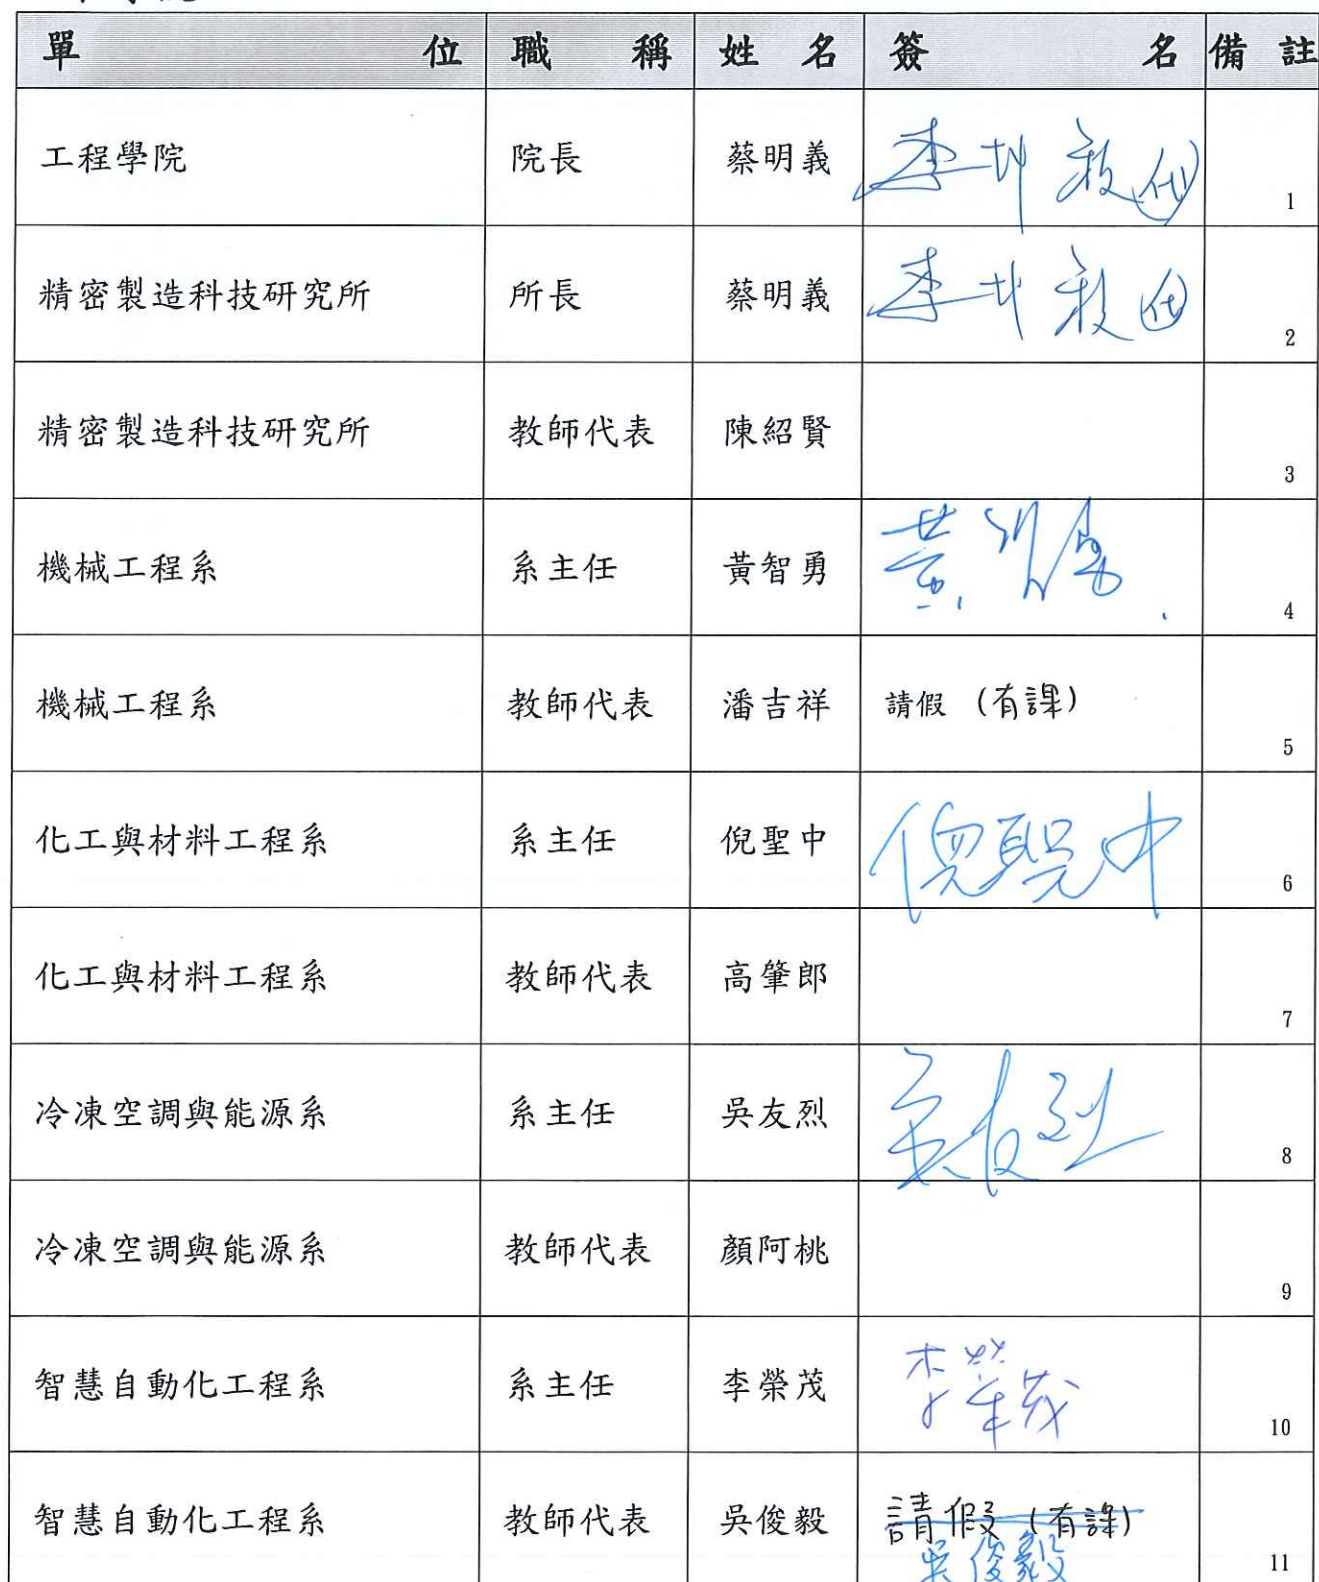 單位 職稱 姓名 簽名 備註
工程學院 院長 蔡明義 李 (代) 1
精密製造科技研究所 所長 蔡明義 李 (代) 2
精密製造科技研究所 教師代表 陳紹賢 3
機械工程系 系主任 黃智勇 黃智勇 4
機械工程系 教師代表 潘吉祥 請假 (有課) 5
化工與材料工程系 系主任 倪聖中 倪聖中 6
化工與材料工程系 教師代表 高肇郎 7
冷凍空調與能源系 系主任 吳友烈 吳友烈 8
冷凍空調與能源系 教師代表 顏阿桃 9
智慧自動化工程系 系主任 李榮茂 李榮茂 10
智慧自動化工程系 教師代表 吳俊毅 請假 (有課)
吳俊毅 11